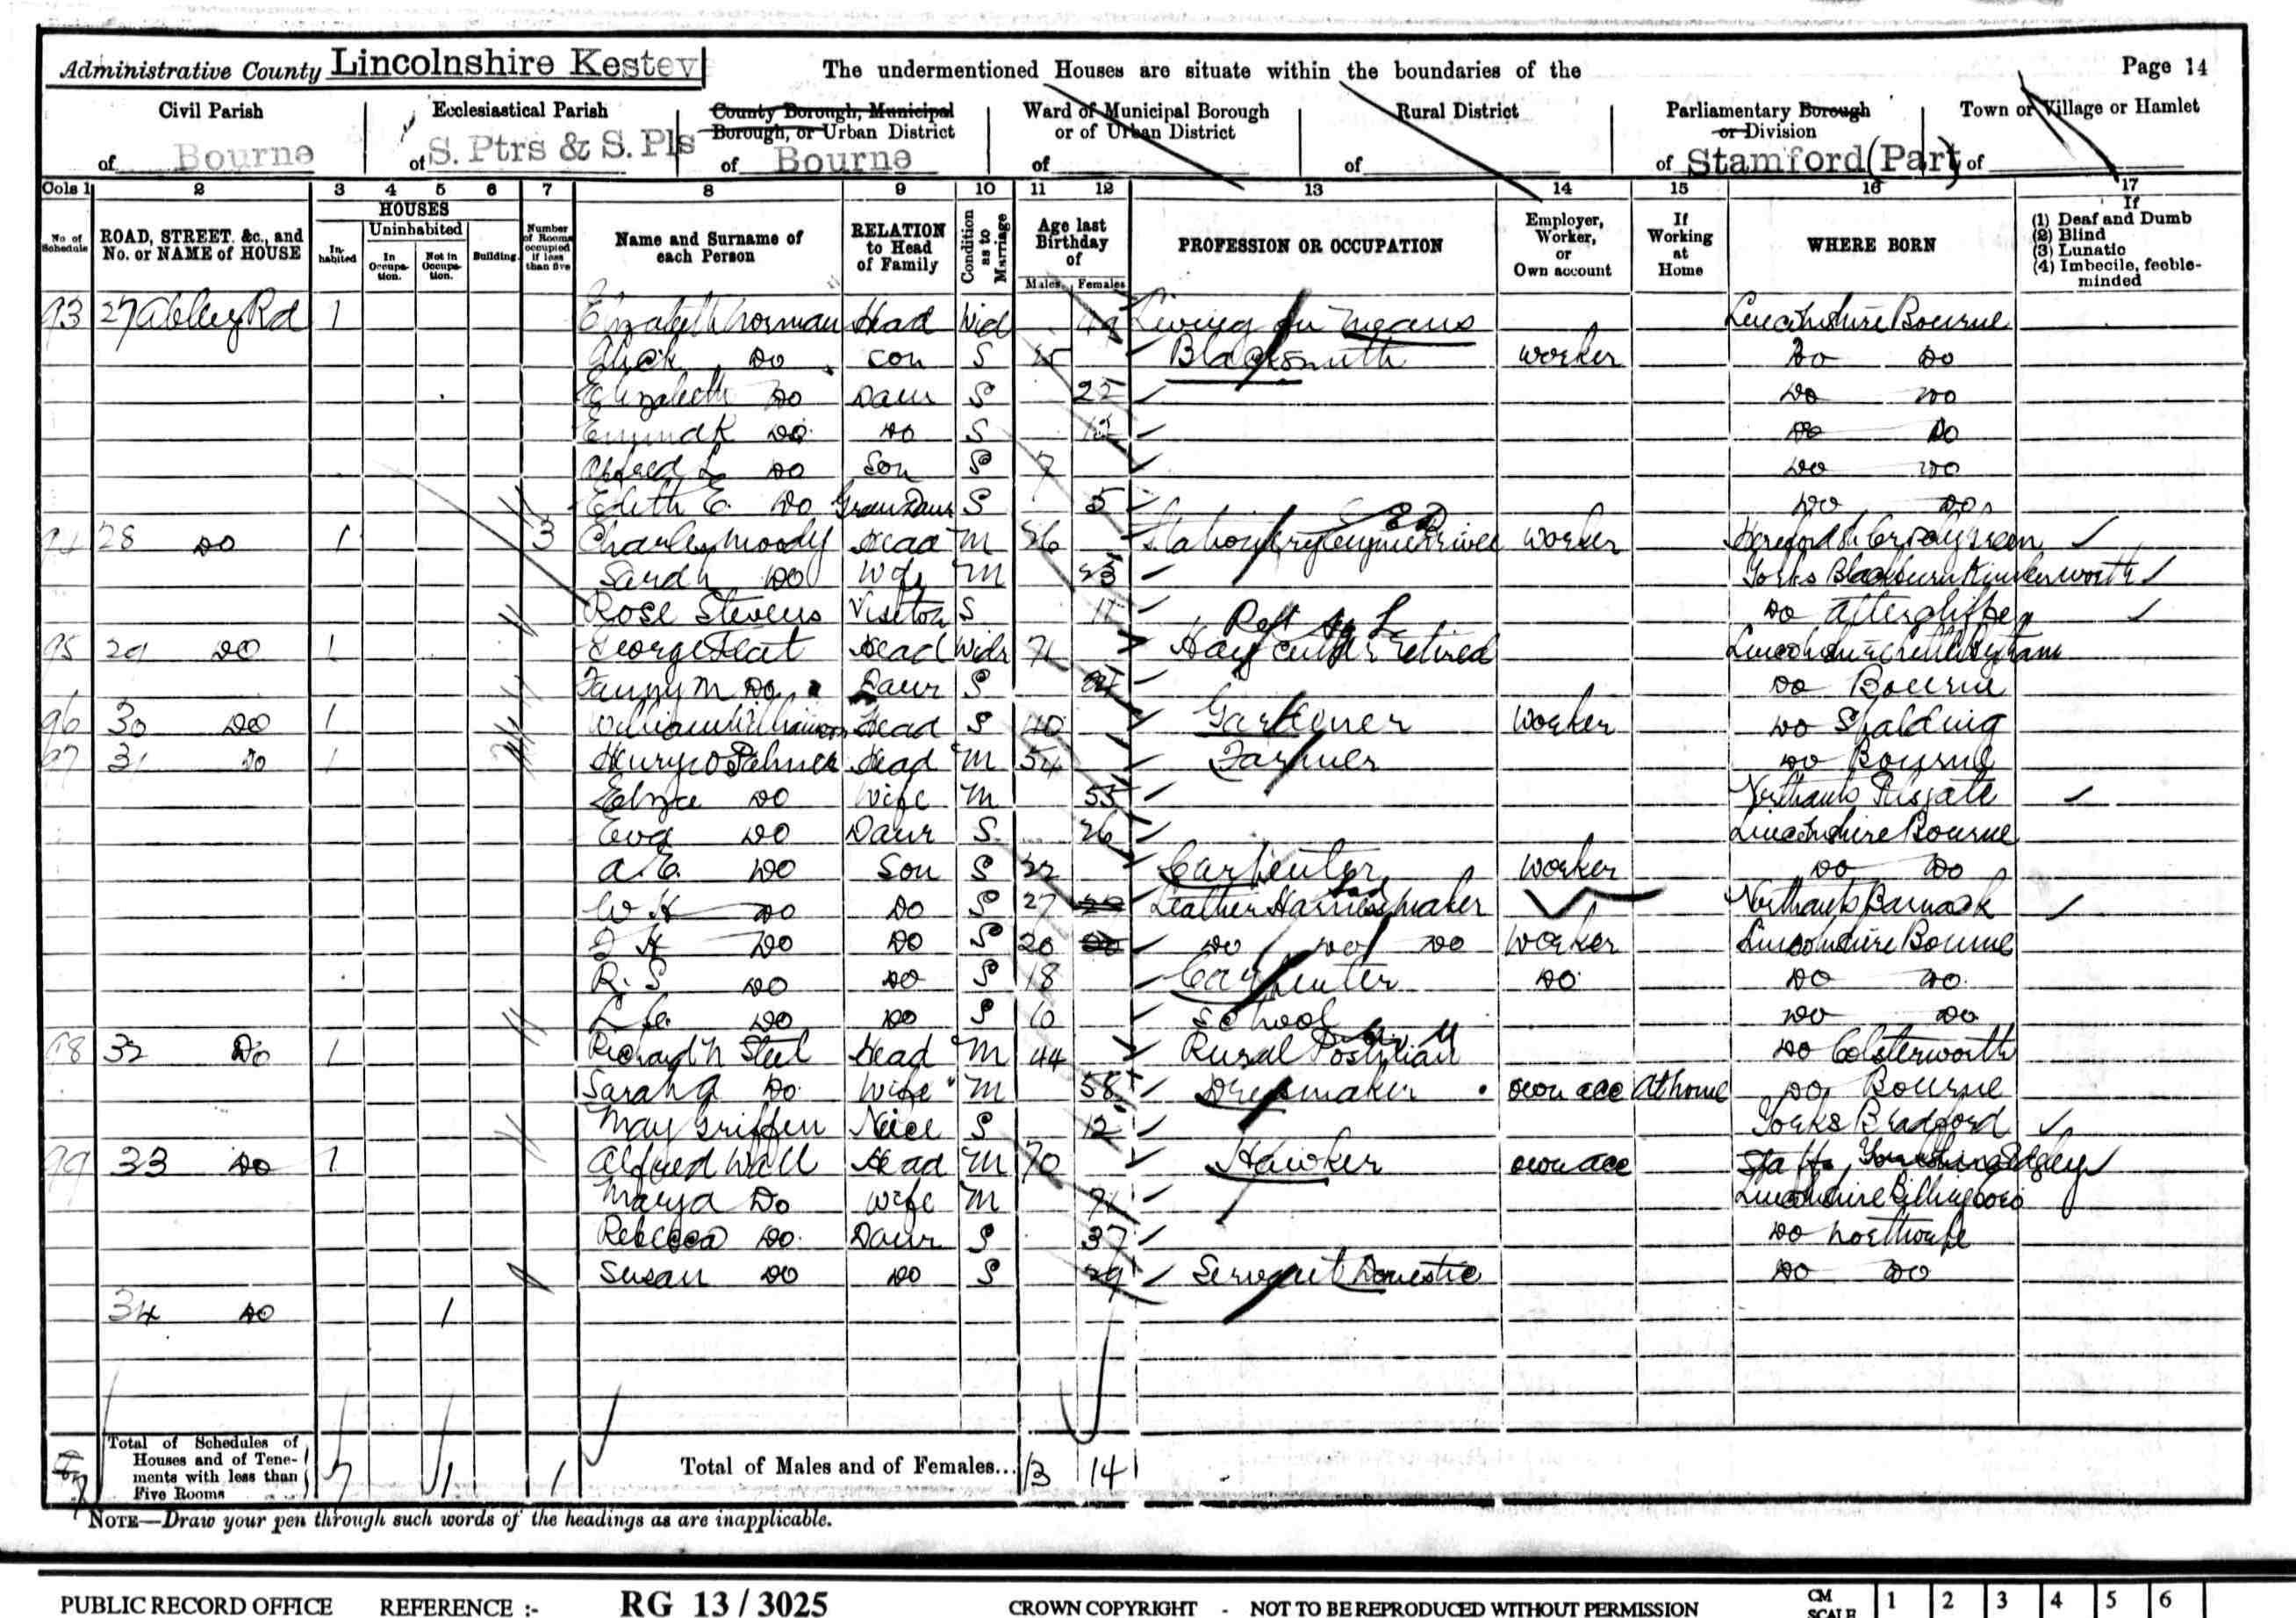 Administrative County Lincolnshire Kestev The undermentioned Houses are situate within the boundaries of the Page 14
Civil Parish Ecclesiastical Parish County Borough, Municipal Borough, or Urban District Ward of Municipal Borough or of Urban District Rural District Parliamentary Borough or Division Town or Village or Hamlet
of Bourne of S. Ptrs & S. Pls of Bourne of of of Stamford (Part) of
Cols 1 2 3 4 5 6 7 8 9 10 11 12 13 14 15 16 17
No of Schedule ROAD, STREET, &c., and No. or NAME of HOUSE HOUSES In-habited Uninhabited In Occupa-tion. Not in Occupa-tion. Building Number of Rooms occupied if less than five Name and Surname of each Person RELATION to Head of Family Condition as to Marriage Age last Birthday of Males Females PROFESSION OR OCCUPATION Employer, Worker, or Own account If Working at Home WHERE BORN If (1) Deaf and Dumb (2) Blind (3) Lunatic (4) Imbecile, feeble-minded
93 27 Abbey Rd 1 Elizabeth Norman Head Wid 49 Living on means Lincolnshire Bourne
Do Son S Blacksmith Worker Do Do
Elizabeth Do Daur S 22 Do Do
Emma K Do Do S Do Do
Alfred L Do Son S 7 Do Do
Edith E. Do Daur S 5 Do Do
94 28 Do 1 3 Charley Moody Head M 56 Worker
Sarah Do Wife M 53 Yorks
Rose Stevens Visitor S Do Attercliffe
95 29 Do 1 George Flat Head Widr 71 Hay cutter retired Lincolnshire
Fanny M Do Daur S Do Bourne
96 30 Do 1 William Williamson Head S 40 Gardener Worker Do Spalding
97 31 Do 1 Henry Palmer Head M 54 Farmer Do Bourne
Eliza Do Wife M 55 Northants
Eva Do Daur S 26 Lincolnshire Bourne
A. E. Do Son S 22 Carpenter Worker Do Do
W H Do Do S 27 Leather Harness maker Northants Barnack
Do Do S 20 Do Do Do Worker Lincolnshire Bourne
R. S Do Do S 18 Carpenter Do Do Do
Do Do S 10 School Do Do
98 32 Do 1 Richard N Steel Head M 44 Rural Postman Do Colsterworth
Sarah A Do Wife M 58 Dressmaker own acc At home Do Bourne
May Griffen Neice S 12 Yorks Bradford
99 33 Do 1 Alfred Wall Head M 70 Hawker own acc Staffs
Mary A Do Wife M 71 Lincolnshire Billingboro
Rebecca Do Daur S 37 Do Northorpe
Susan Do Do S 29 Servant Domestic Do Do
34 Do 1
Total of Schedules of Houses and of Tene-ments with less than Five Rooms 7 1 1 Total of Males and of Females... 13 14
NOTE—Draw your pen through such words of the headings as are inapplicable.
PUBLIC RECORD OFFICE REFERENCE :- RG 13 / 3025 CROWN COPYRIGHT - NOT TO BE REPRODUCED WITHOUT PERMISSION CM SCALE 1 2 3 4 5 6